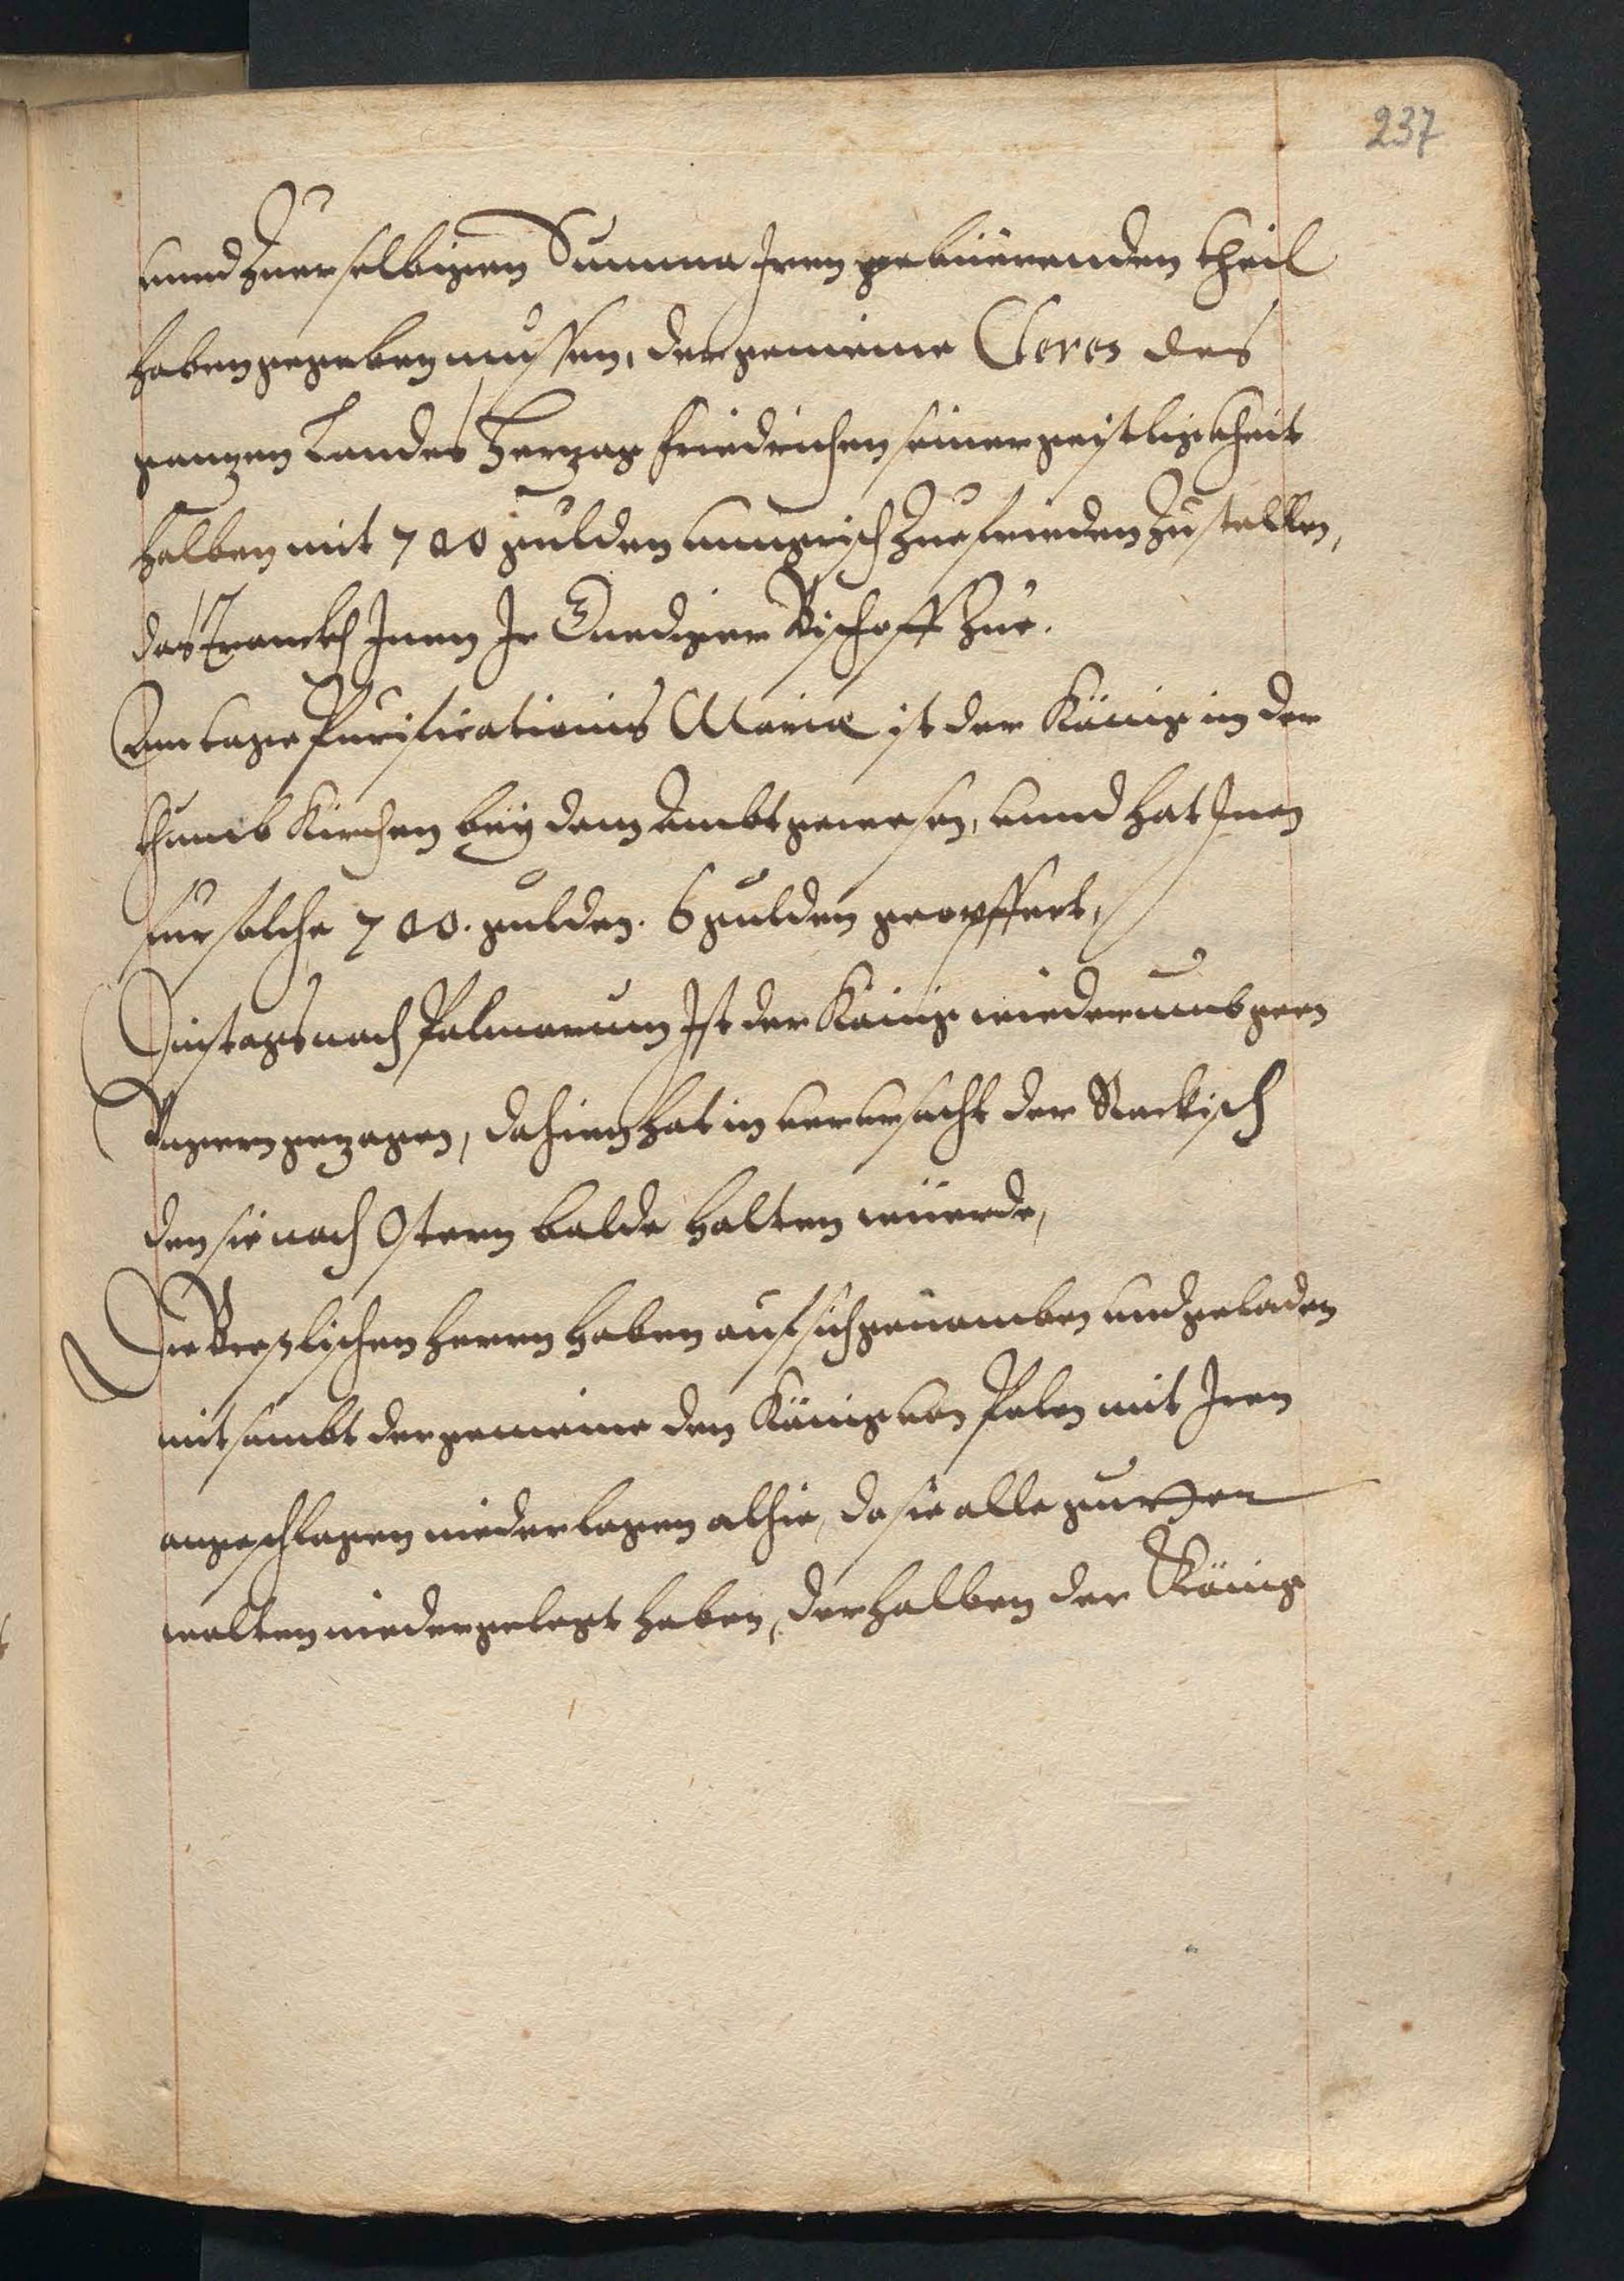 237
unnd Zuer selbigen Summa Iren gebüerenden theil
haben gegeben mussen, der gemeine Cleros des
gantzen Landes Hertzog Friedrichen seiner geistligkheit
halben mit 700 gulden unngrisch Zuefrieden Zustellen,
das Iranckh Inen Ir Gnediger Bischoff Zue.
Am tage Purificationis Mariæ ist der Känig in der
thumb Kirchen beÿ dem Ambt gewesen, unnd hat Inen
fur solche 700. gulden. 6 gulden geopffert,
Dinstags nach Palmarum Ist der Känig wiederumb geen
Ungern gezogen, dahien hat in verursacht der Rackisch
den sie nach Ostern balde halten wüerde,
Die Breslischen herrn haben auf sich genomben und geladen
mit sambt der gemeine den Känig von Polen mit Iren
angeschlagen niederlagen alhie, da sie alle gutter
wolten niedergelegt haben, derhalben der Känig